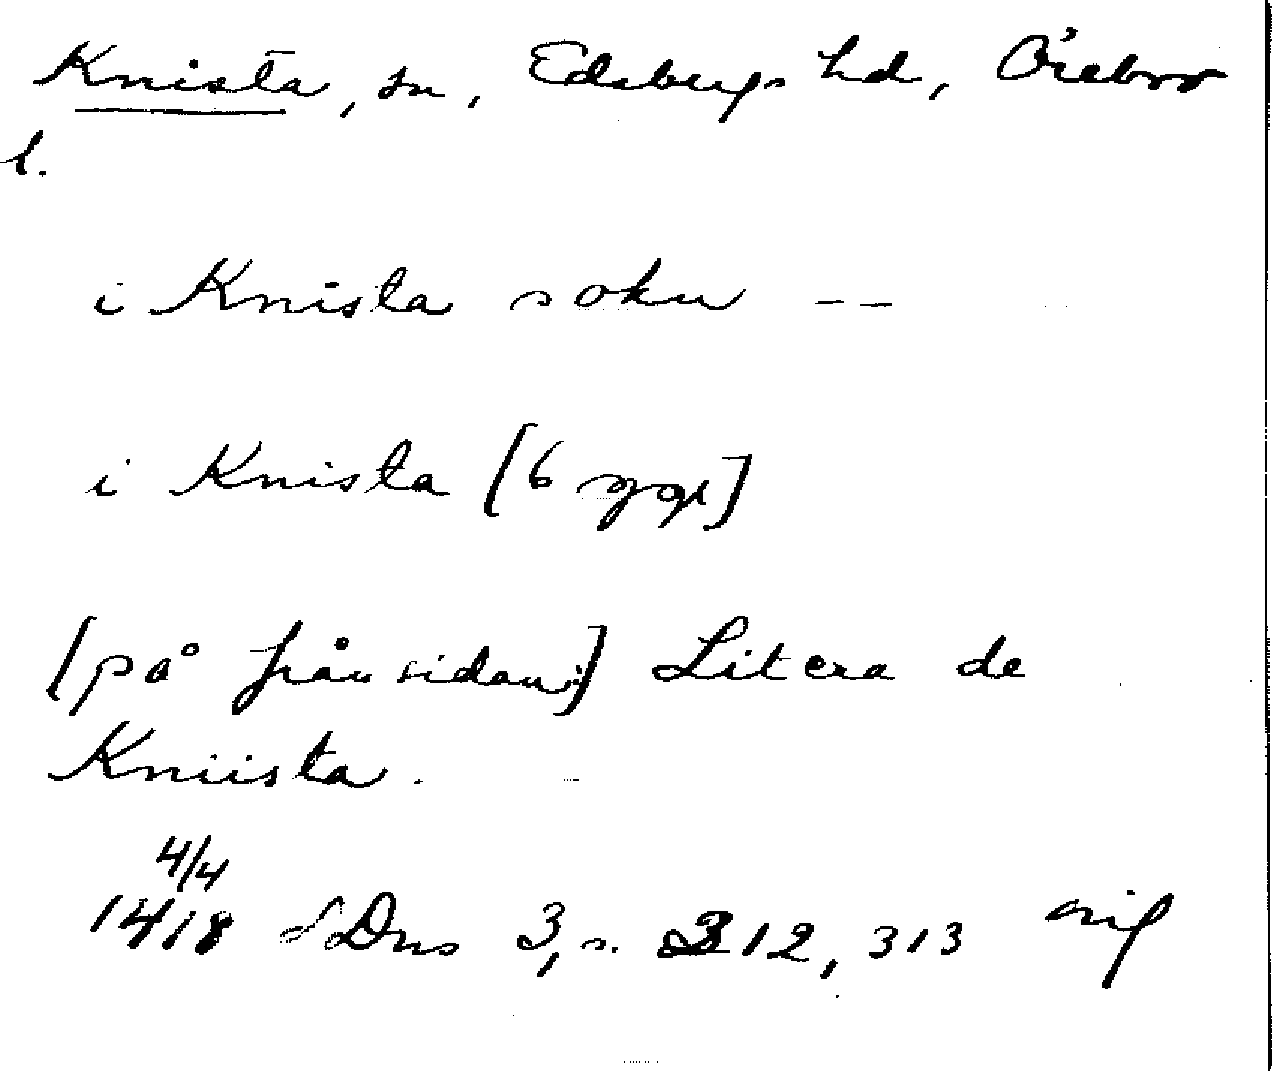 Knista, sn, Edsbergs hd, Örebro
l.
i Knista sokn --
i Knista [6 ggr]
[på frånsidan:] Litera de
Kniista.
4/4
1418 SDns 3, s. 312, 313 orif